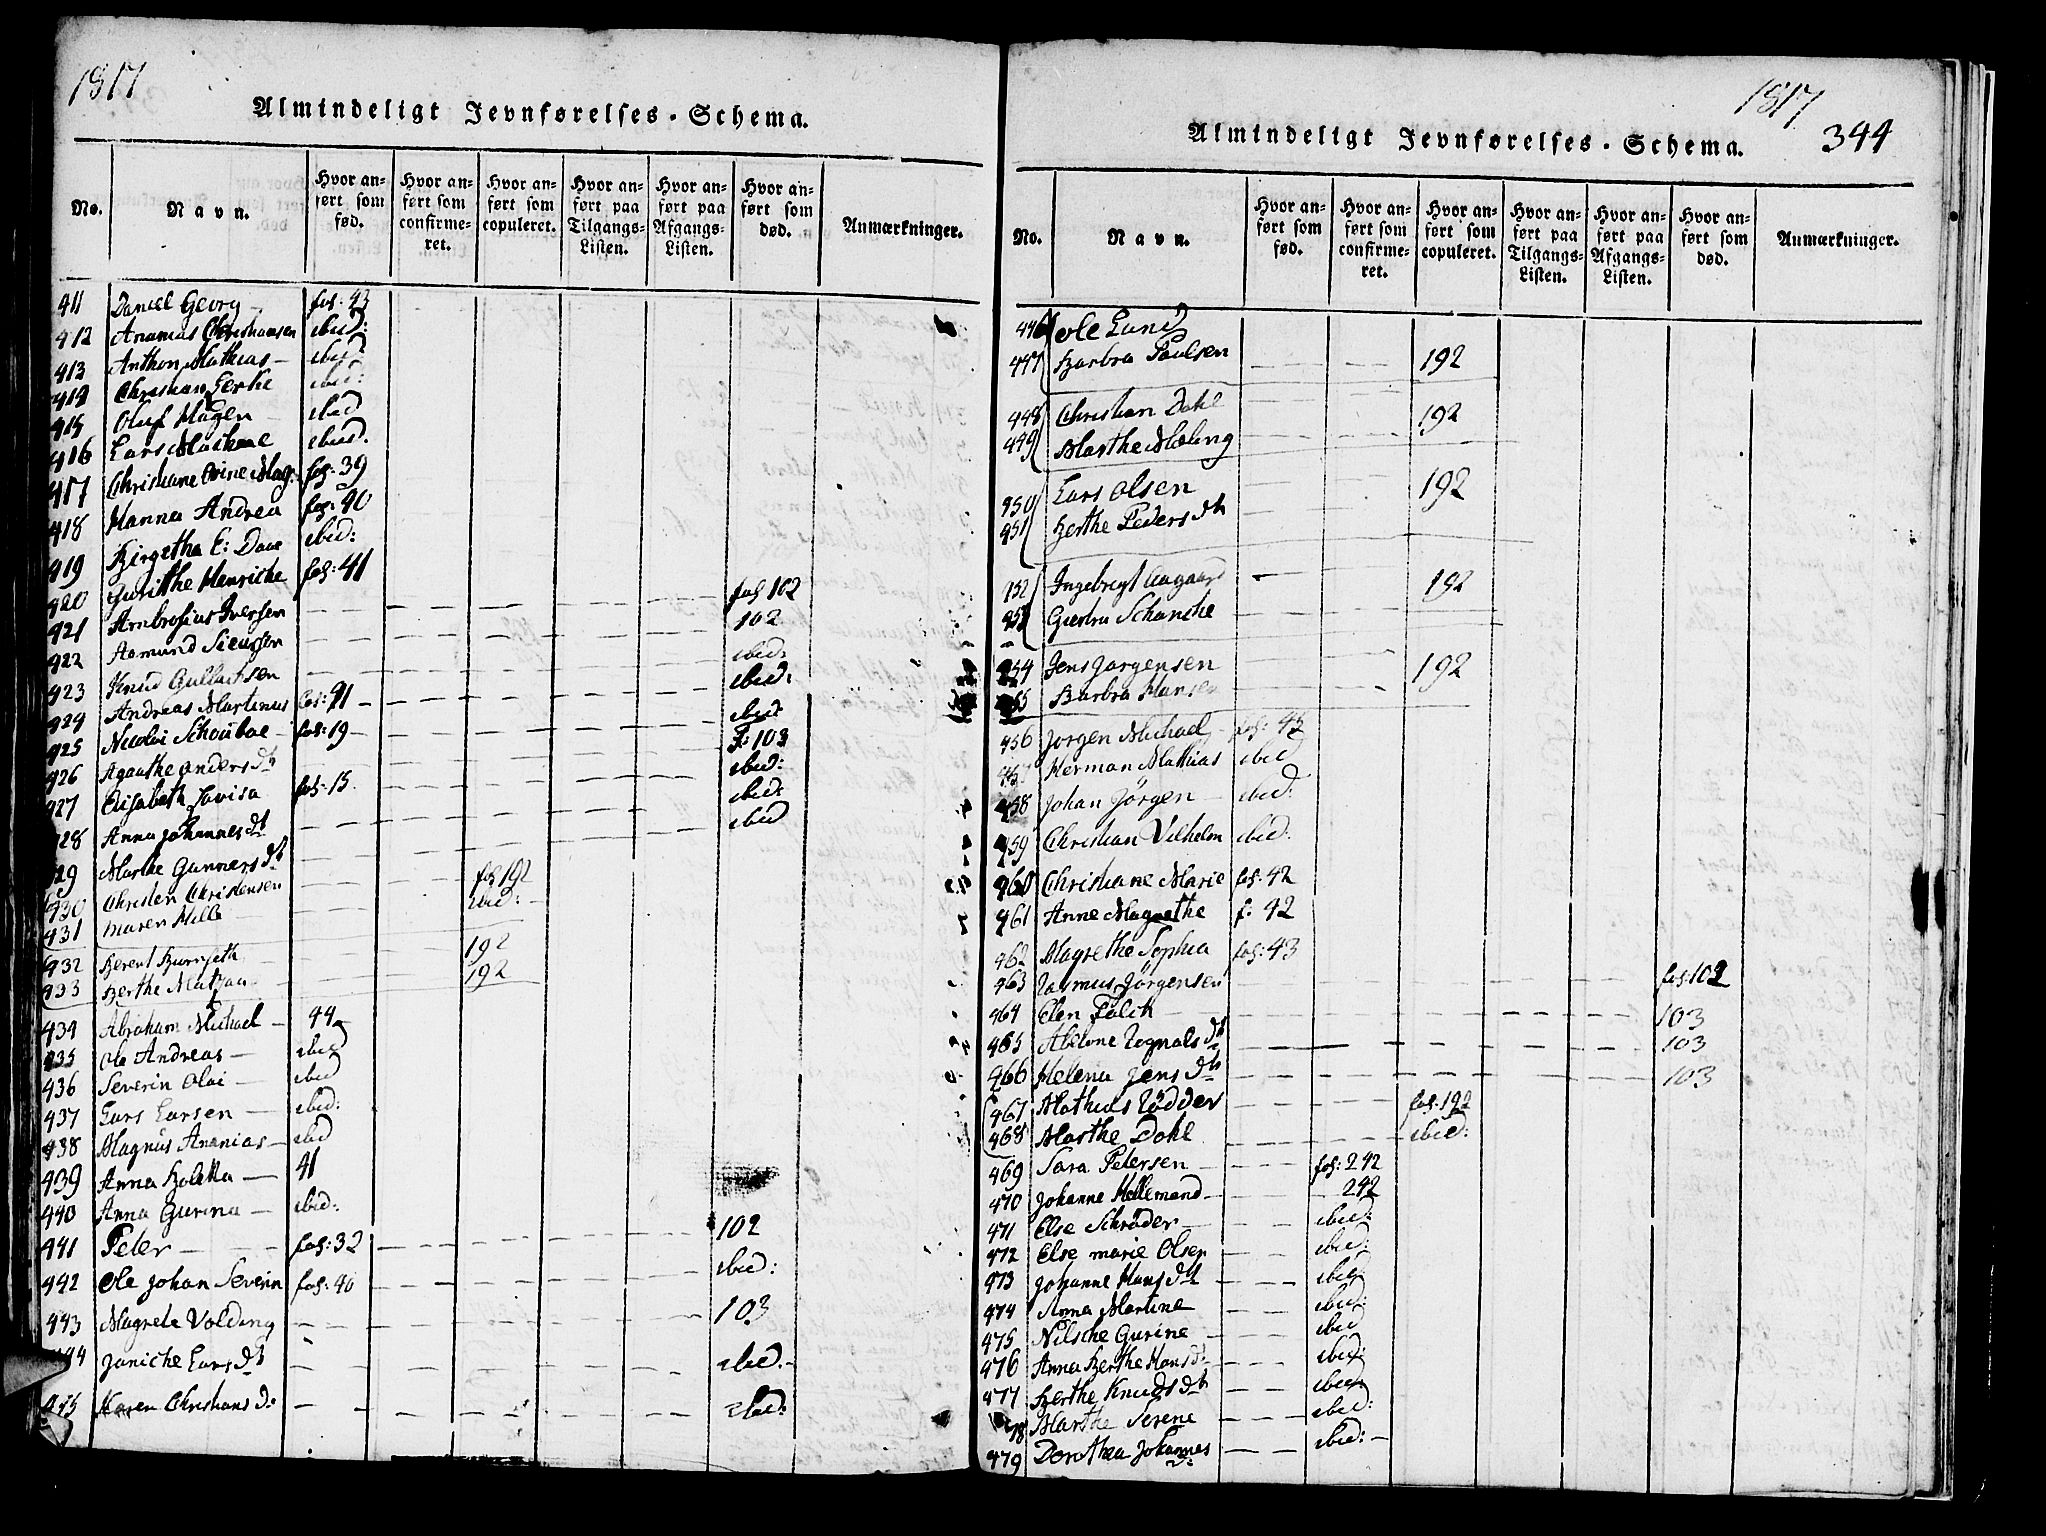 1817
Almindeligt Jevnførelses-Schema.
No.
Navn.
Hvor anført som fød.
Hvor anført som confirmeret.
Hvor anført som copuleret.
Hvor anført paa Tilgangs-Listen.
Hvor anført paa Afgangs-Listen.
Hvor anført som død.
Anmærkninger.
411 Daniel Georg fol: 43
412 Ananias Christiansen ibid:
413 Anthon Mathias ibid
414 Christian Gerke ibid:
415 Oluf Hagen ibid
416 Lars ibid.
417 Christiane Mag. fol: 39
418 Hanna Andrea fol: 40
419 Birgetha E: ibid:
420 Gurithe Henriche fol: 41
421 Ambrosius Iversen fol 102
422 Aamund Sieursen 102
423 Knud Gullachsen ibid:
424 Andreas Martinus fol: 41 ibid:
425 Nicolai Schoubae fol: 19 ibid
426 Agaathe anders dt f: 103
427 Elisabeth Lovisa fol: 15 ibid:
428 Anna Johannes dt ibid:
429 Marthe Gunners dt ibid
430 Christen Christensen fol 192
431 Maren Helle ibid:
432 Berent 192
433 Berthe 192
434 Abraham Michael 44
435 Ole Andreas ibid
436 Severin Olai ibid
437 Lars Larsen ibid:
438 Magnus Ananias ibid
439 Anna Bolette 41
440 Anna Gurina ibid:
441 Peter fol: 32 102
442 Ole Johan Severin fol: 40 ibid:
443 Magrete Volding 103
444 Janiche Lars dt ibid.
445 Karen Christians d: ibid:
1817
344
Almindeligt Jevnførelses-Schema.
No.
Navn.
Hvor anført som fød.
Hvor anført som confirmeret.
Hvor anført som copuleret.
Hvor anført paa Tilgangs-Listen.
Hvor anført paa Afgangs-Listen.
Hvor anført som død.
Anmærkninger.
446 Ole Lund
447 Barbra Paulsen 192
448 Christian Dahl 192
449 Marthe Maling
450 Lars Olsen 192
451 Berthe Peders dt
452 Ingebregt Aagaard 192
453 Giertru Schanche
454 Jens Jørgensen 192
455 Barbra Hansen
456 Jørgen Michael fol: 43
457 Herman Mathias ibid
458 Johan Jörgen ibid:
459 Christian Vilhelm ibid.
460 Christiane Marie fol: 42
461 Anne Magrethe f: 42
462 Magrethe Sophia fol: 43
463 Rasmus Jörgensen fol 102
464 Elen Falck 103
465 Abelone Rognals dt 103
466 Helena Jens dt 103
467 Mathias Rödder fol: 192
468 Marthe Dahl ibid:
469 Sara Petersen fol: 242
470 Johanne Hellemand 242
471 Else Schröder ibid:
472 Else marie Olsen ibid:
473 Johanne Hans dt ibid
474 Anna Martine ibid:
475 Nilsche Gurine ibid
476 Anna Berthe Hans d: ibid:
477 Berthe Knuds dt ibid:
478 Marthe Serene ibid:
479 Dorthea Johannes d: ibid: